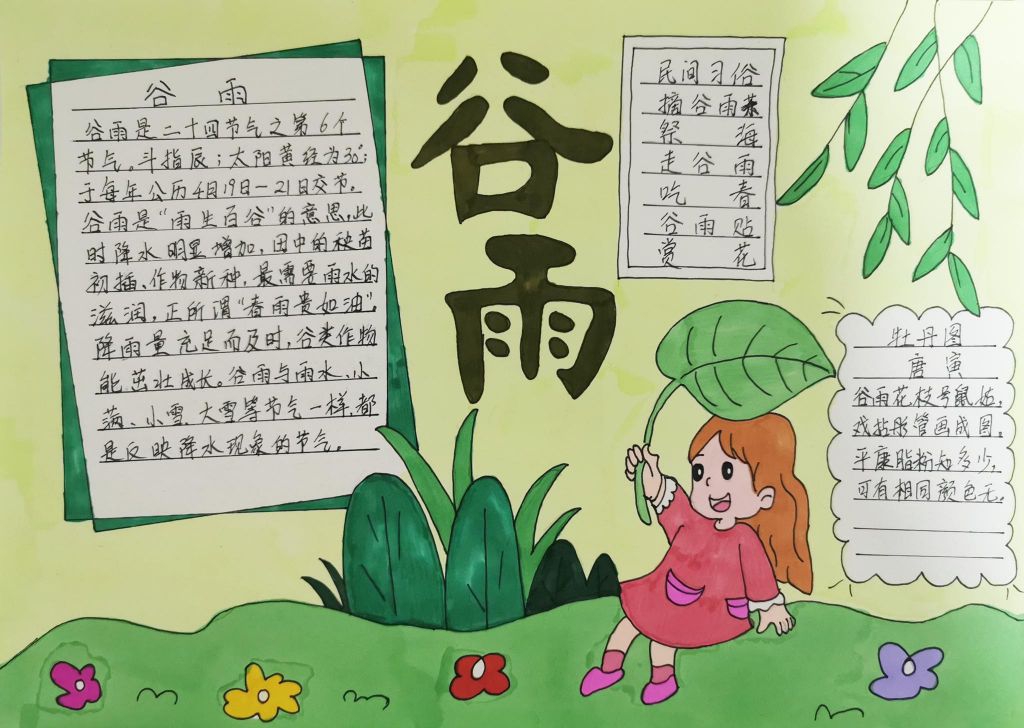 谷雨
谷雨是二十四节气之第6个
节气。斗指辰；太阳黄经为30°；
于每年公历4月19日－21日交节。
谷雨是“雨生百谷”的意思，此
时降水明显增加，田中的秧苗
初插、作物新种，最需要雨水的
滋润，正所谓“春雨贵如油”。
降雨量充足而及时，谷类作物
能茁壮成长。谷雨与雨水、小
满、小雪、大雪等节气一样，都
是反映降水现象的节气。
谷
雨
民间习俗
摘谷雨茶
祭海
走谷雨
吃春
谷雨贴
赏花
牡丹图
唐寅
谷雨花枝号鼠姑，
戏拈彤管画成图。
平康脂粉知多少，
可有相同颜色无。